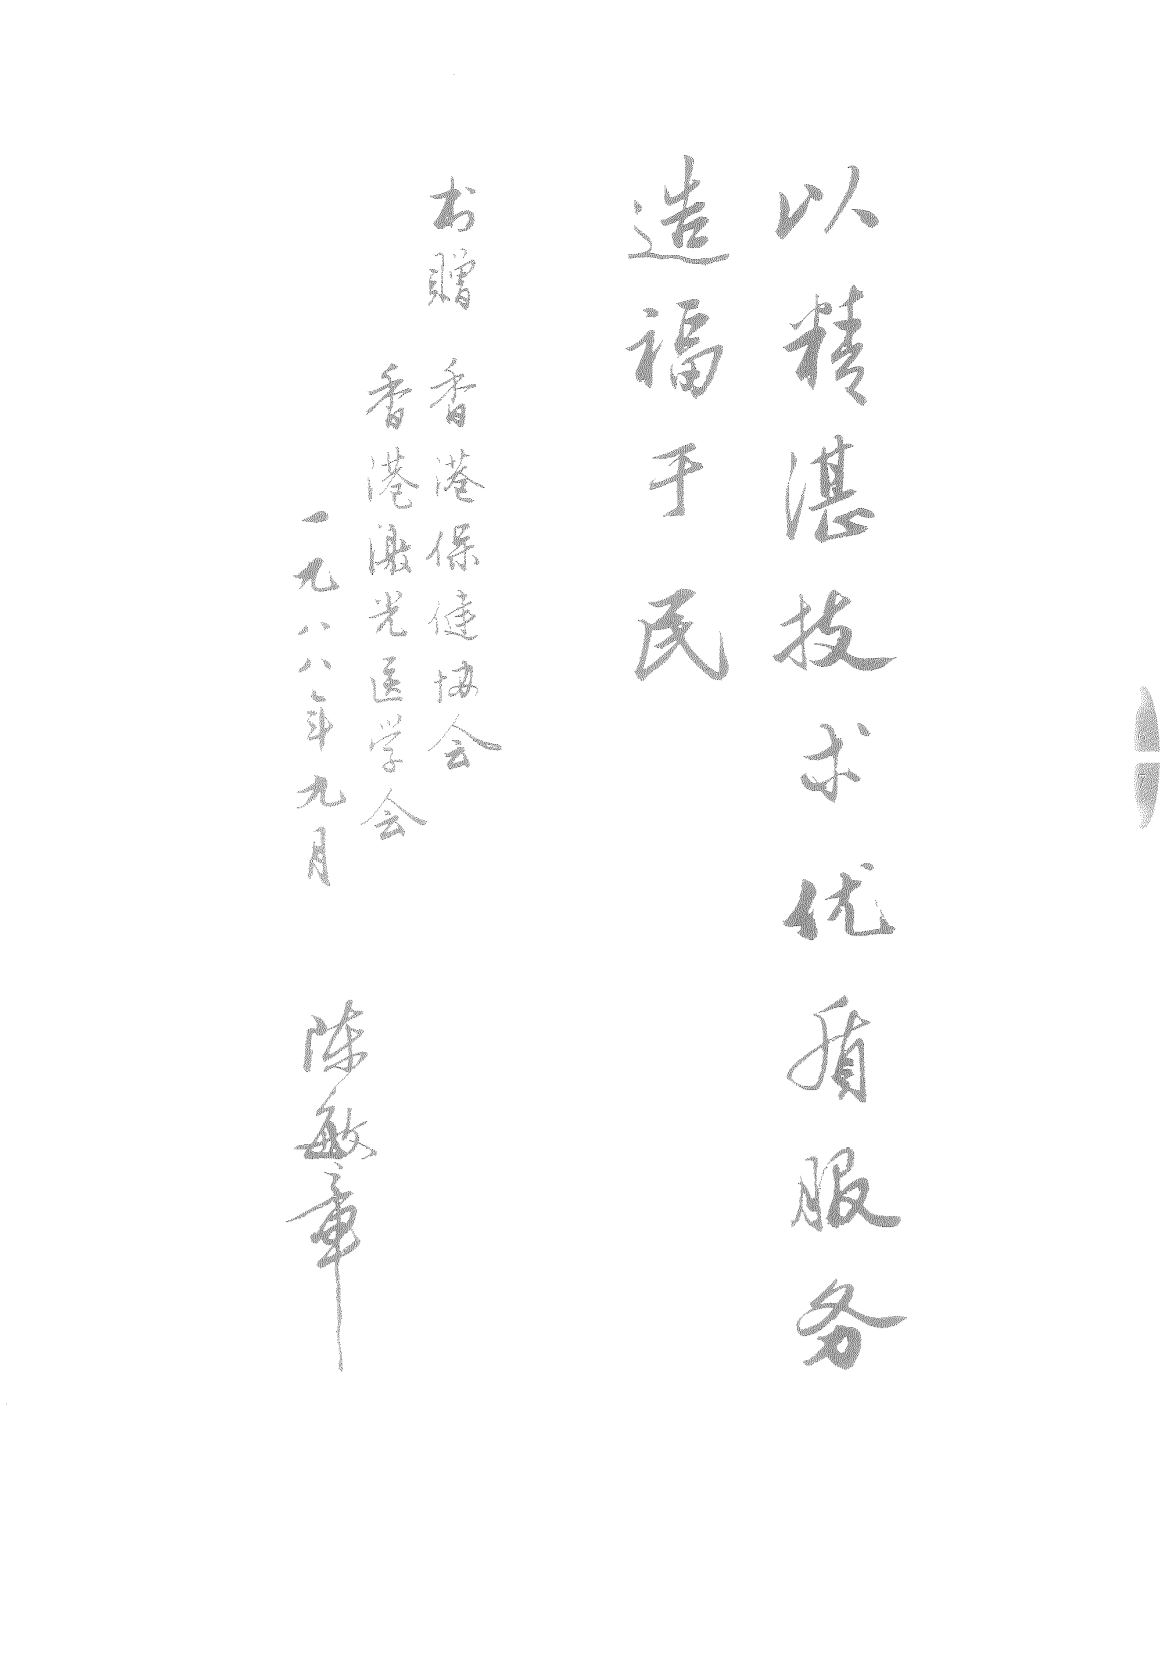 以精湛技术优质服务
造福于民
书贈 香港保健协会
香港激光医学会
一九八八年九月 陈敏章